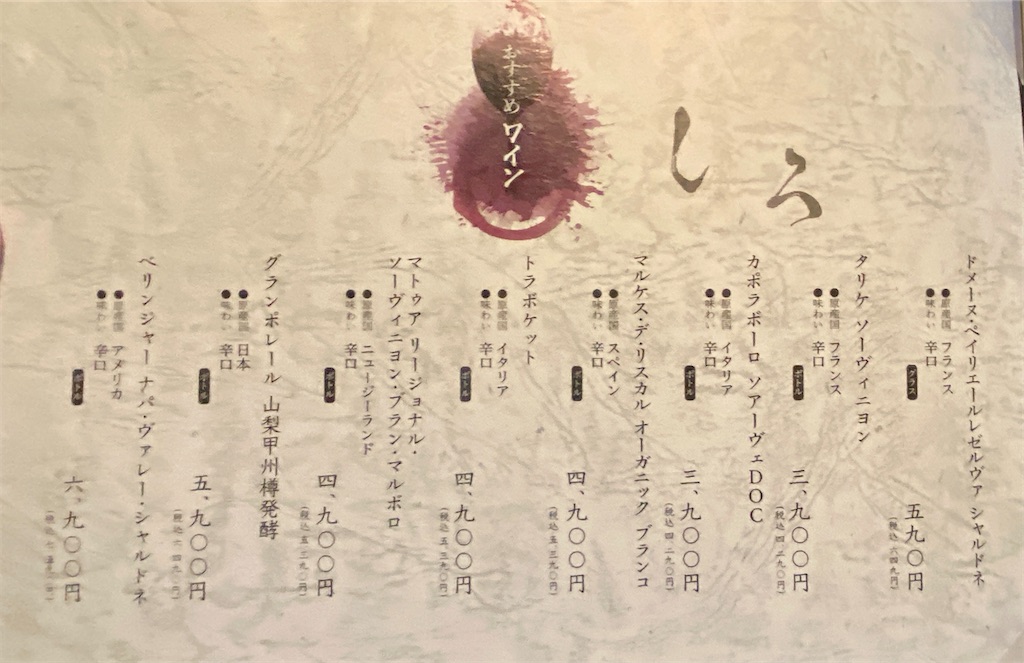 おすすめワイン
しろ
ドメーヌ・ペイリエールレゼルヴァ シャルドネ
●原産国 フランス
●味わい 辛口
グラス
五九〇円
(税込六四九円)
タリケ ソーヴィニヨン
●原産国 フランス
●味わい 辛口
ボトル
三、九〇〇円
(税込四、二九〇円)
カポラボーロ ソアーヴェDOC
●原産国 イタリア
●味わい 辛口
ボトル
三、九〇〇円
(税込四、二九〇円)
マルケス・デ・リスカル オーガニック ブランコ
●原産国 スペイン
●味わい 辛口
ボトル
四、九〇〇円
(税込五、三九〇円)
トラポケット
●原産国 イタリア
●味わい 辛口
ボトル
四、九〇〇円
(税込五、三九〇円)
マトゥア リージョナル・
ソーヴィニヨン・ブラン・マルボロ
●原産国 ニュージーランド
●味わい 辛口
ボトル
四、九〇〇円
(税込五、三九〇円)
グランポレール 山梨甲州樽発酵
●原産国 日本
●味わい 辛口
ボトル
五、九〇〇円
(税込六、四九〇円)
ベリンジャー ナパ・ヴァレー・シャルドネ
●原産国 アメリカ
●味わい 辛口
ボトル
六、九〇〇円
(税込七、五九〇円)